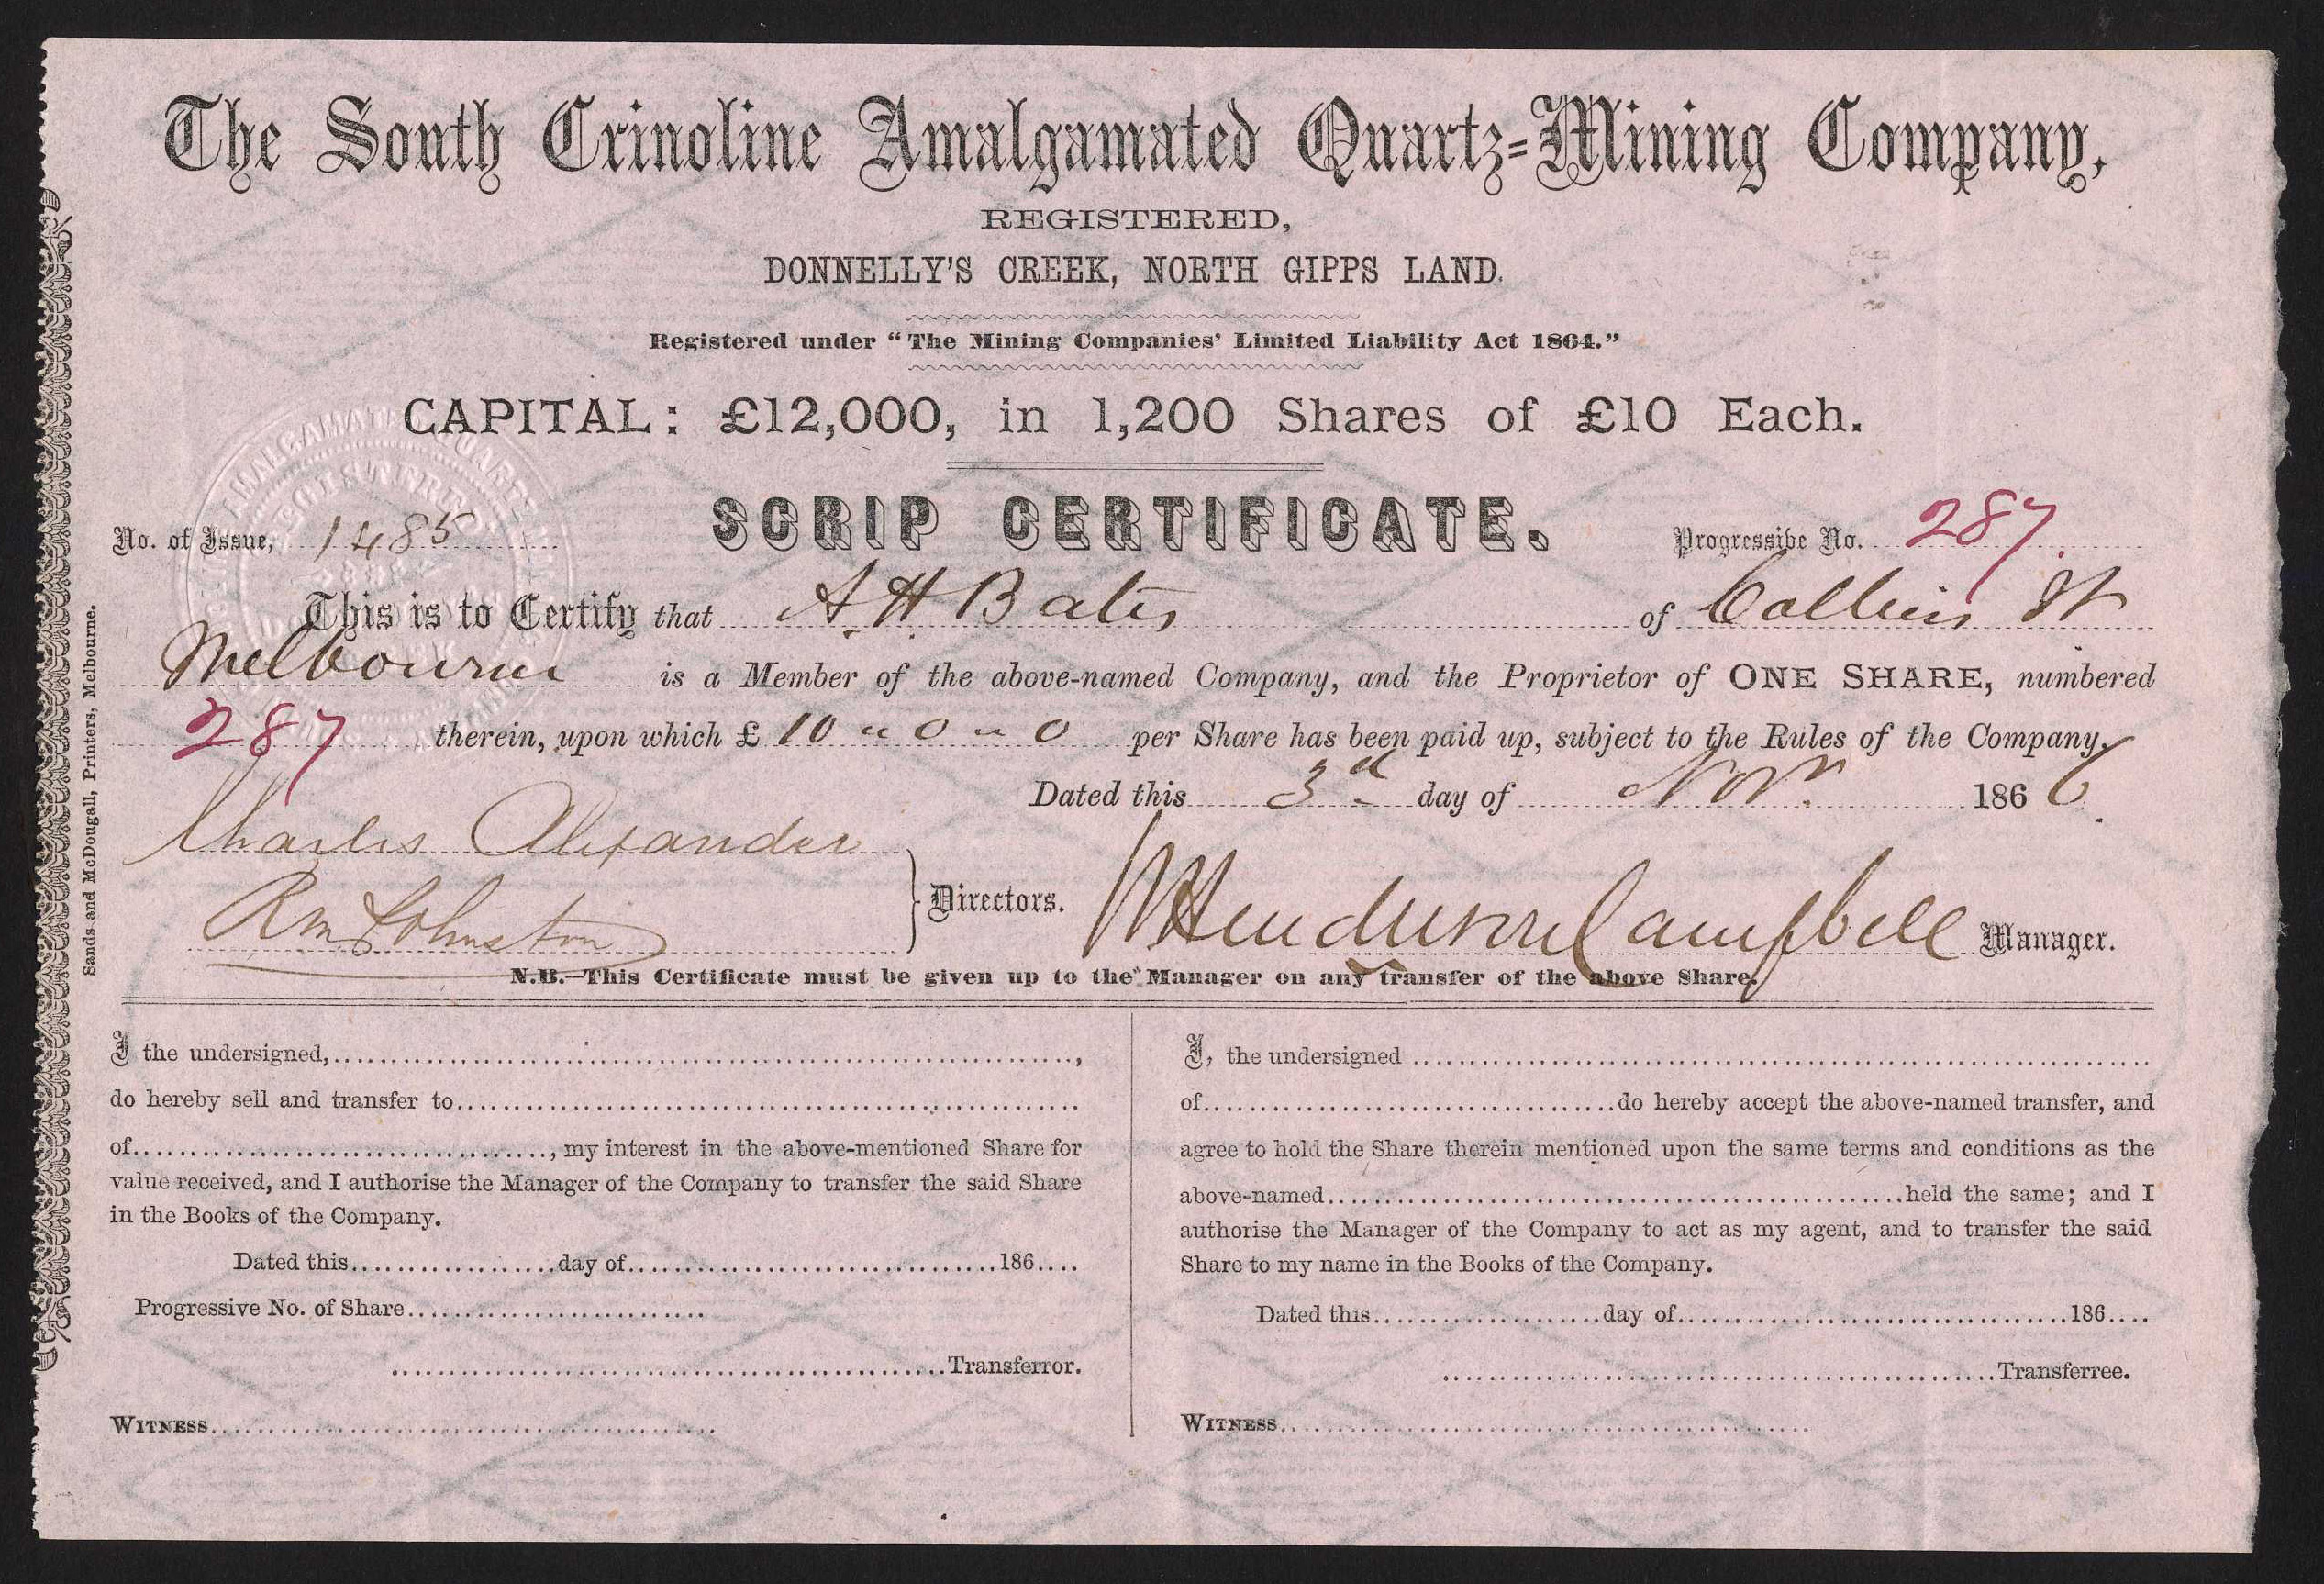 The South Crinoline Amalgamated Quartz-Mining Company,
REGISTERED,
DONNELLY'S CREEK, NORTH GIPPS LAND.
Registered under "The Mining Companies' Limited Liability Act 1864."
CAPITAL: £12,000, in 1,200 Shares of £10 Each.
SCRIP CERTIFICATE.
No. of Issue, 1485 Progressive No. 287.
This is to Certify that A. H. Bates of Collins St
Melbourne is a Member of the above-named Company, and the Proprietor of ONE SHARE, numbered
287 therein, upon which £ 10 " 0 " 0 per Share has been paid up, subject to the Rules of the Company.
Dated this 3rd day of Novr. 1866.
Charles Alexander
Rm Johnston
Directors.
Campbell Manager.
N.B.—This Certificate must be given up to the Manager on any transfer of the above Share.
I the undersigned,
do hereby sell and transfer to
of, my interest in the above-mentioned Share for
value received, and I authorise the Manager of the Company to transfer the said Share
in the Books of the Company.
Dated this day of 186
Progressive No. of Share
Transferror.
WITNESS
I, the undersigned
of do hereby accept the above-named transfer, and
agree to hold the Share therein mentioned upon the same terms and conditions as the
above-named held the same; and I
authorise the Manager of the Company to act as my agent, and to transfer the said
Share to my name in the Books of the Company.
Dated this day of 186
Transferree.
WITNESS
Sands and McDougall, Printers, Melbourne.